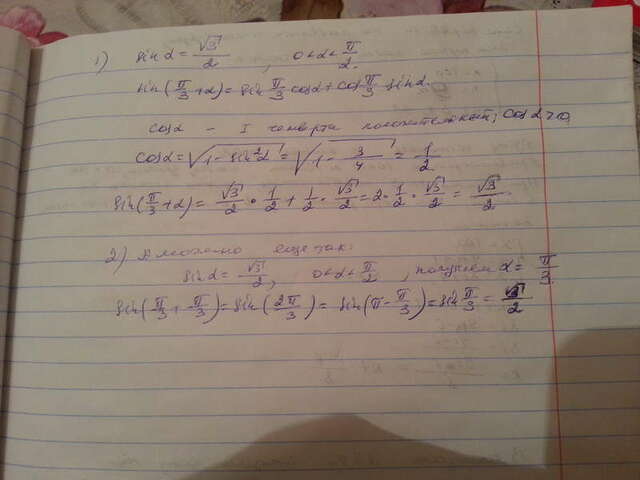 1) sin α = √3/2, 0<α<π/2.
sin(π/3+α) = sin π/3 cos α + cos π/3 sin α.
cos α – I четверть положительный, cos α > 0
cos α = √(1 – sin²α) = √(1 – 3/4) = 1/2
sin(π/3+α) = √3/2 · 1/2 + 1/2 · √3/2 = 2 · 1/2 · √3/2 = √3/2
2) А можно еще так:
sin α = √3/2, 0<α<π/2, получаем α = π/3
sin(π/3 + π/3) = sin(2π/3) = sin(π – π/3) = sin π/3 = √3/2